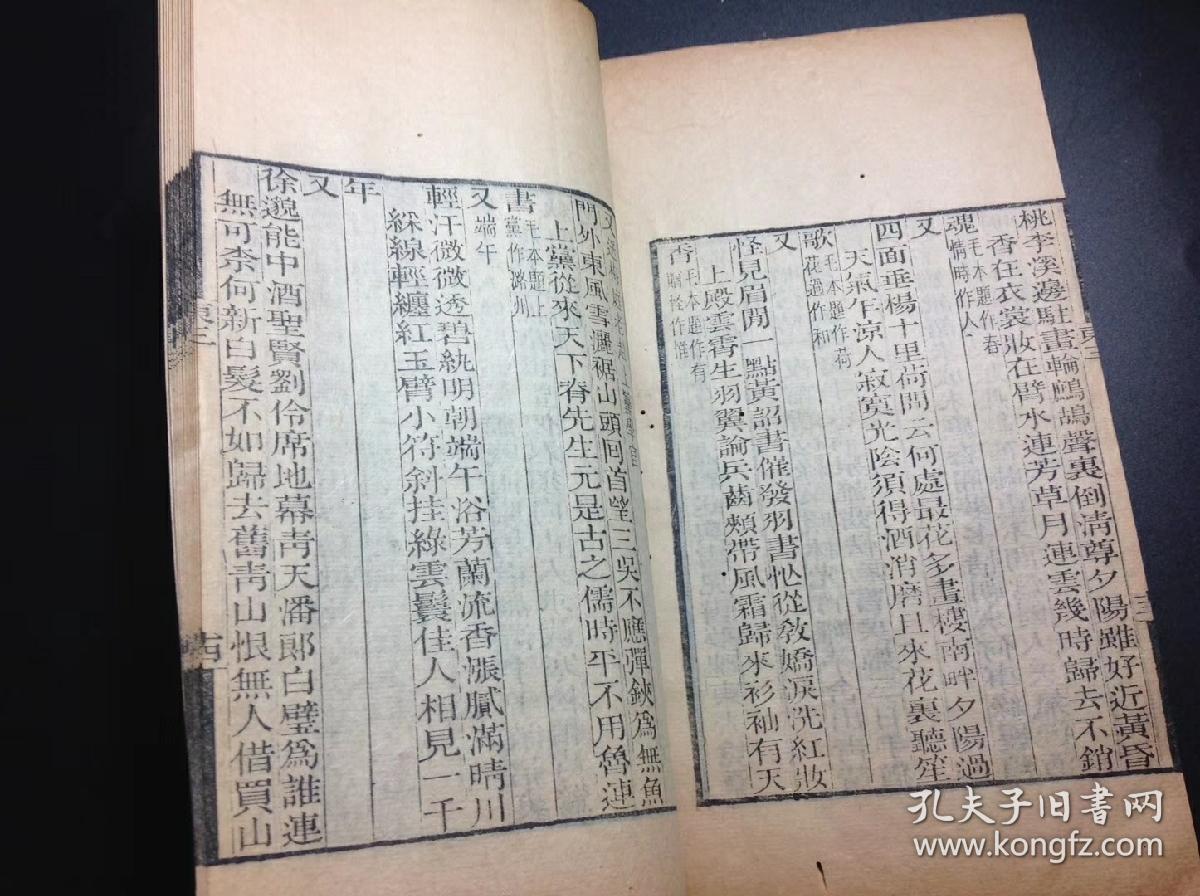 桃李溪邊駐畫輪鷓鴣聲裏倒清尊夕陽雖好近黃昏
香在衣裳妝在臂水連芳草月連雲幾時歸去不銷
魂毛本題作春情時作人
又
四面垂楊十里荷問云何處最花多畫樓南畔夕陽過
天氣乍涼人寂寞光陰須得酒消磨且來花裏聽笙
歌毛本題作荷花過作和
又
怪見眉間一點黃詔書催發羽書忙從敎嬌淚洗紅妝
上殿雲霄生羽翼論兵齒頰帶風霜歸來衫袖有天
香毛本題作有贈怪作惟
又
門外東風雪灑裾山頭回首望三吳不應彈鋏爲無魚
上黨從來天下脊先生元是古之儒時平不用魯連
書毛本題上黨作潞州
又端午
輕汗微微透碧紈明朝端午浴芳蘭流香漲膩滿晴川
綵線輕纏紅玉臂小符斜挂綠雲鬟佳人相見一千
年
又
徐邈能中酒聖賢劉伶席地幕靑天潘郎白璧爲誰連
無可柰何新白髮不如歸去舊靑山恨無人借買山
孔夫子旧书网
www.kongfz.com